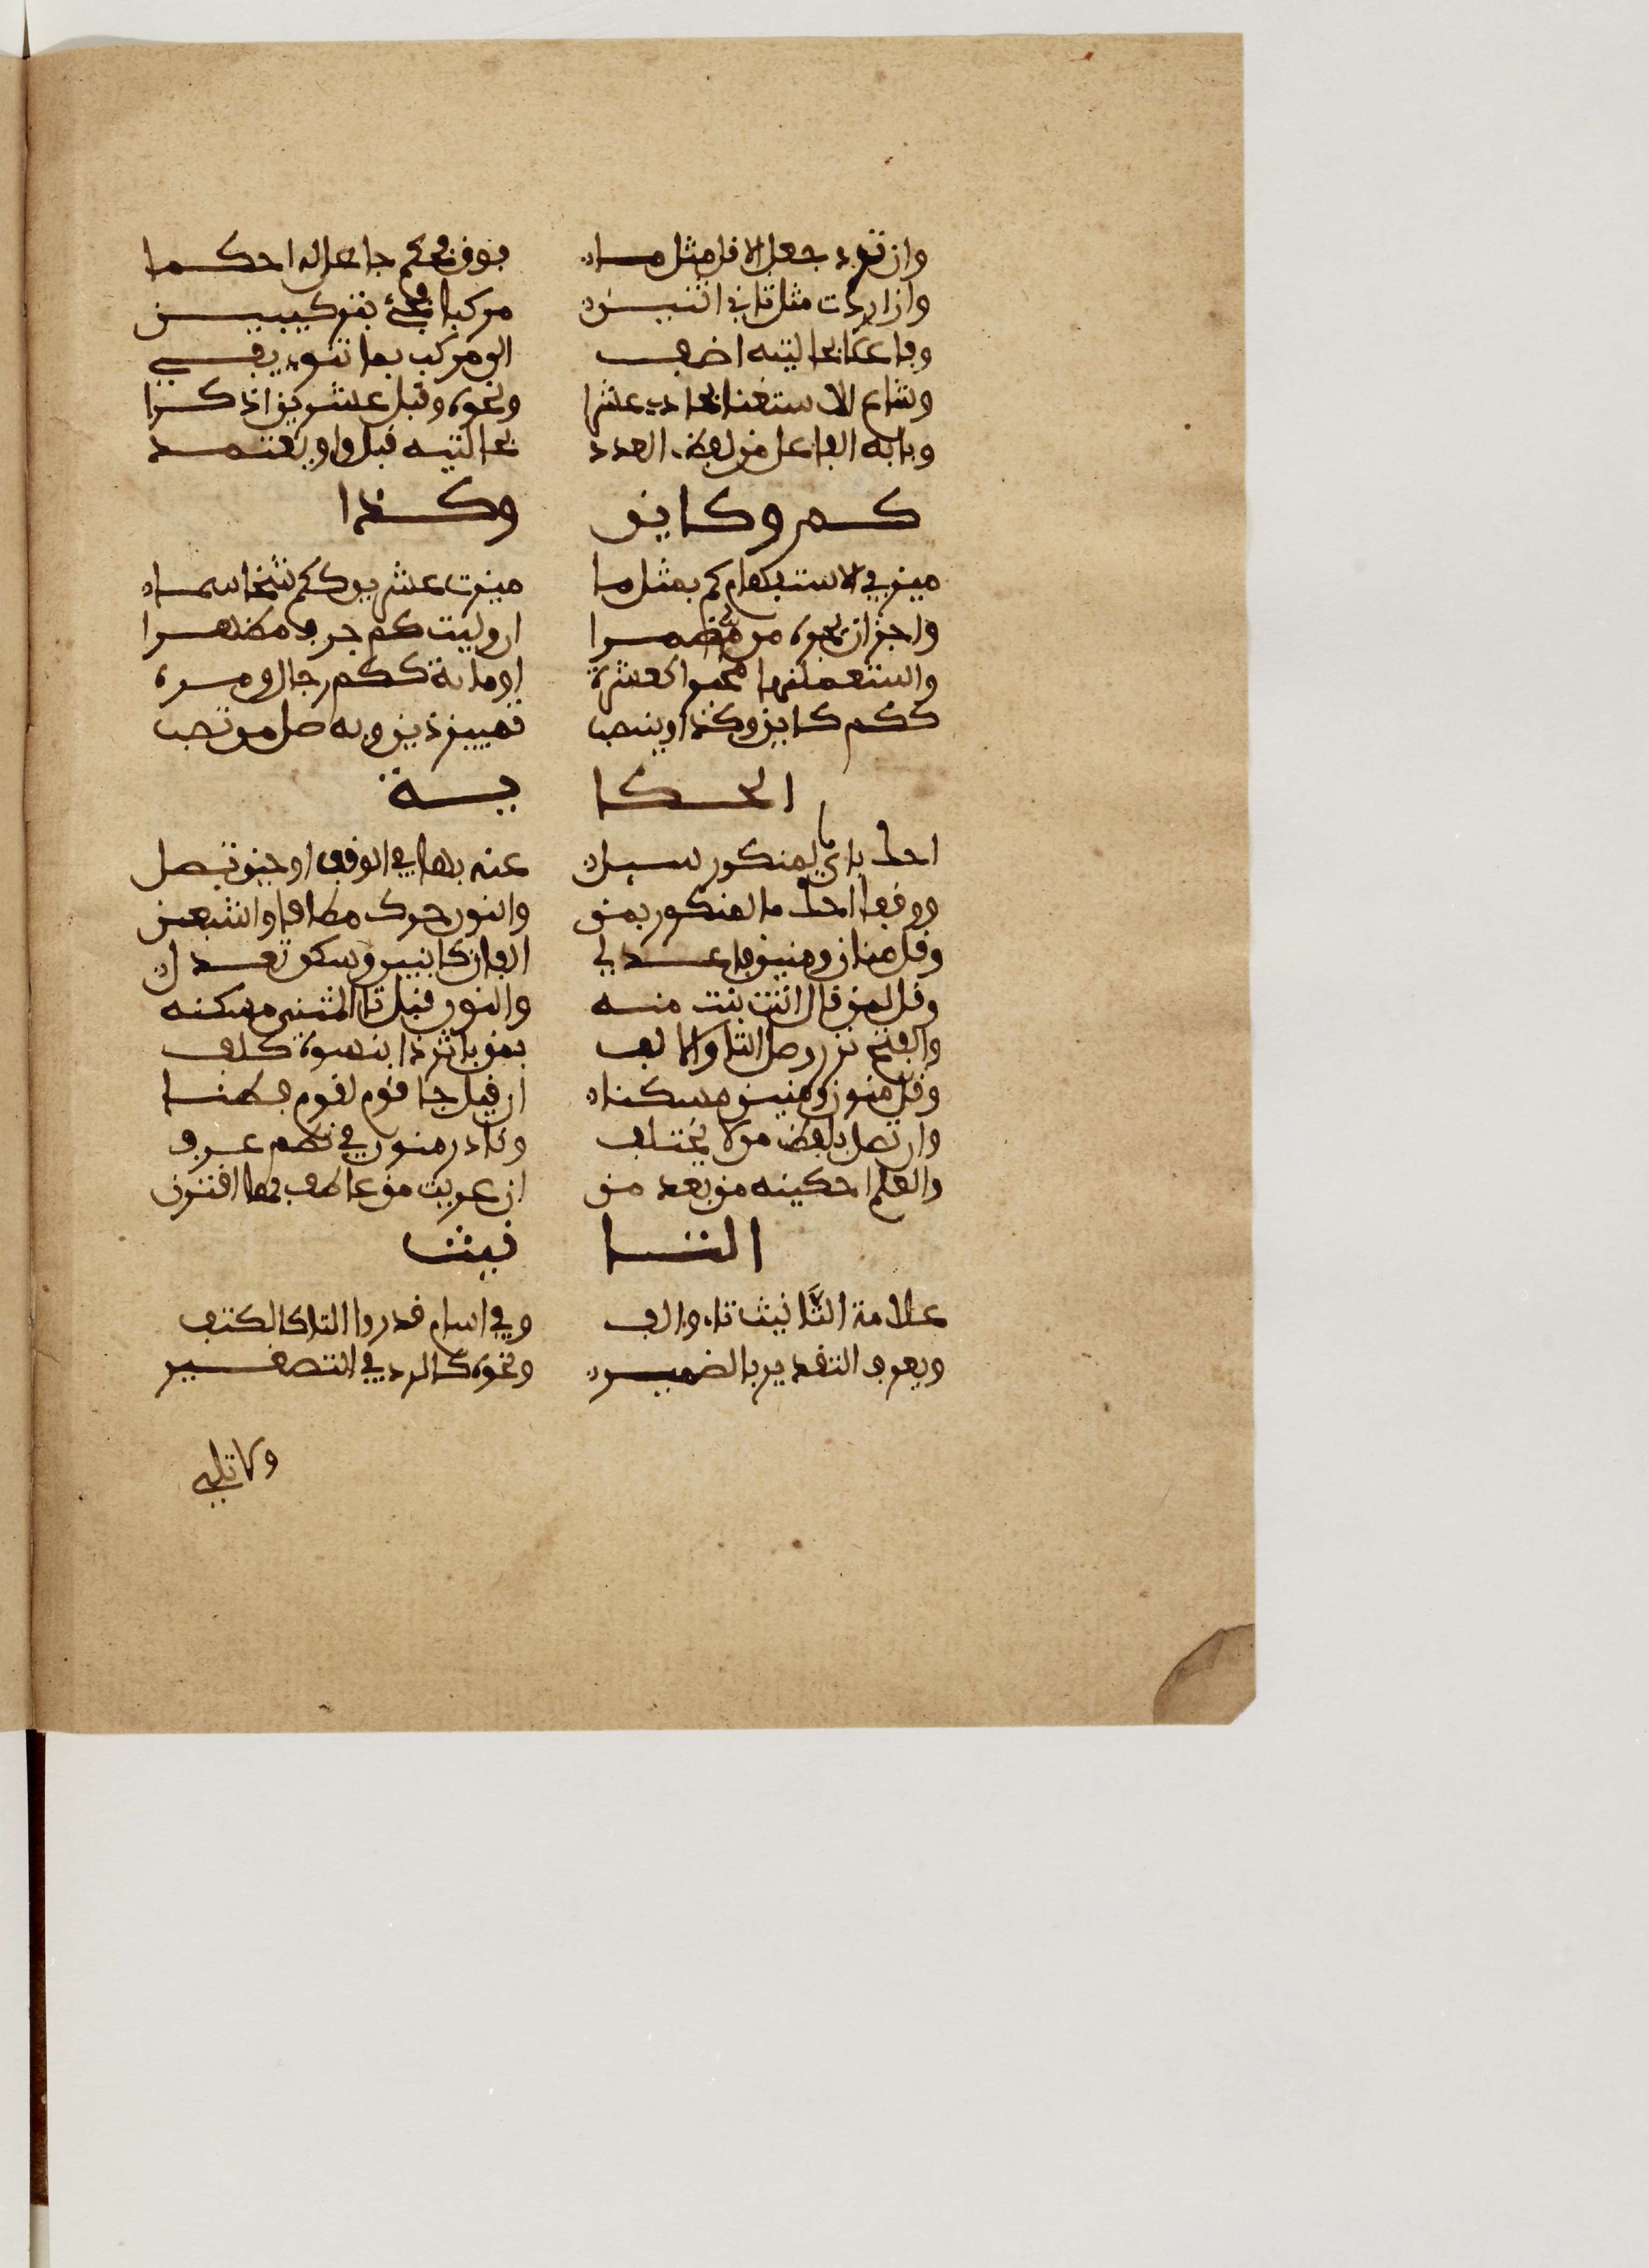 وان ترد جعل الاقل مثل ما فوق فحكم جاعل له احكما
وان اردت مثل ثاني اثنين مركبا فجئ بتركيبين
او فاعلا بحالتيه اضف الى مركب بما تنوي يفي
وشاع الاستغنا بحادي عشرا ونحوه وقبل عشرين اذكرا
وبابه الفاعل من لفظ العدد بحالتيه قبل واو يعتمد
كم وكاين وكذا
ميز في الاستفهام كم بمثل ما ميزت عشرين ككم شخصا سما
واجز ان تجره من مضمرا ان وليت كم حرف جر مظهرا
واستعملنها مخبرا كعشره او مائة ككم رجال او مره
ككم كاين وكذا وينتصب تمييز ذين وبه صل من تصب
الحكاية
احك باي ما لمنكور سئل عنه بها في الوقف او حين تصل
ووقفا احك ما لمنكور بمن والنون حرك مطلقا واشبعن
وقل منان ومنين بعد لي الفان كابنين وسكن تعدل
وقل لمن قال اتت بنت منه والنون قبل تا المثنى مسكنه
والفتح نزر وصل التا والالف بمن باثر ذا بنسوة كلف
وقل منون ومنين مسكنا ان قيل جا قوم لقوم فطنا
وان تصل فلفظ من لا يختلف ونادر منون في نظم عرف
والعلم احكينه من بعد من ان عريت من عاطف بها اقترن
التانيث
علامة التانيث تاء والف وفي اسام قدروا التا كالكتف
ويعرف التقدير بالضمير ونحوه كالرد في التصغير
ولا تلي